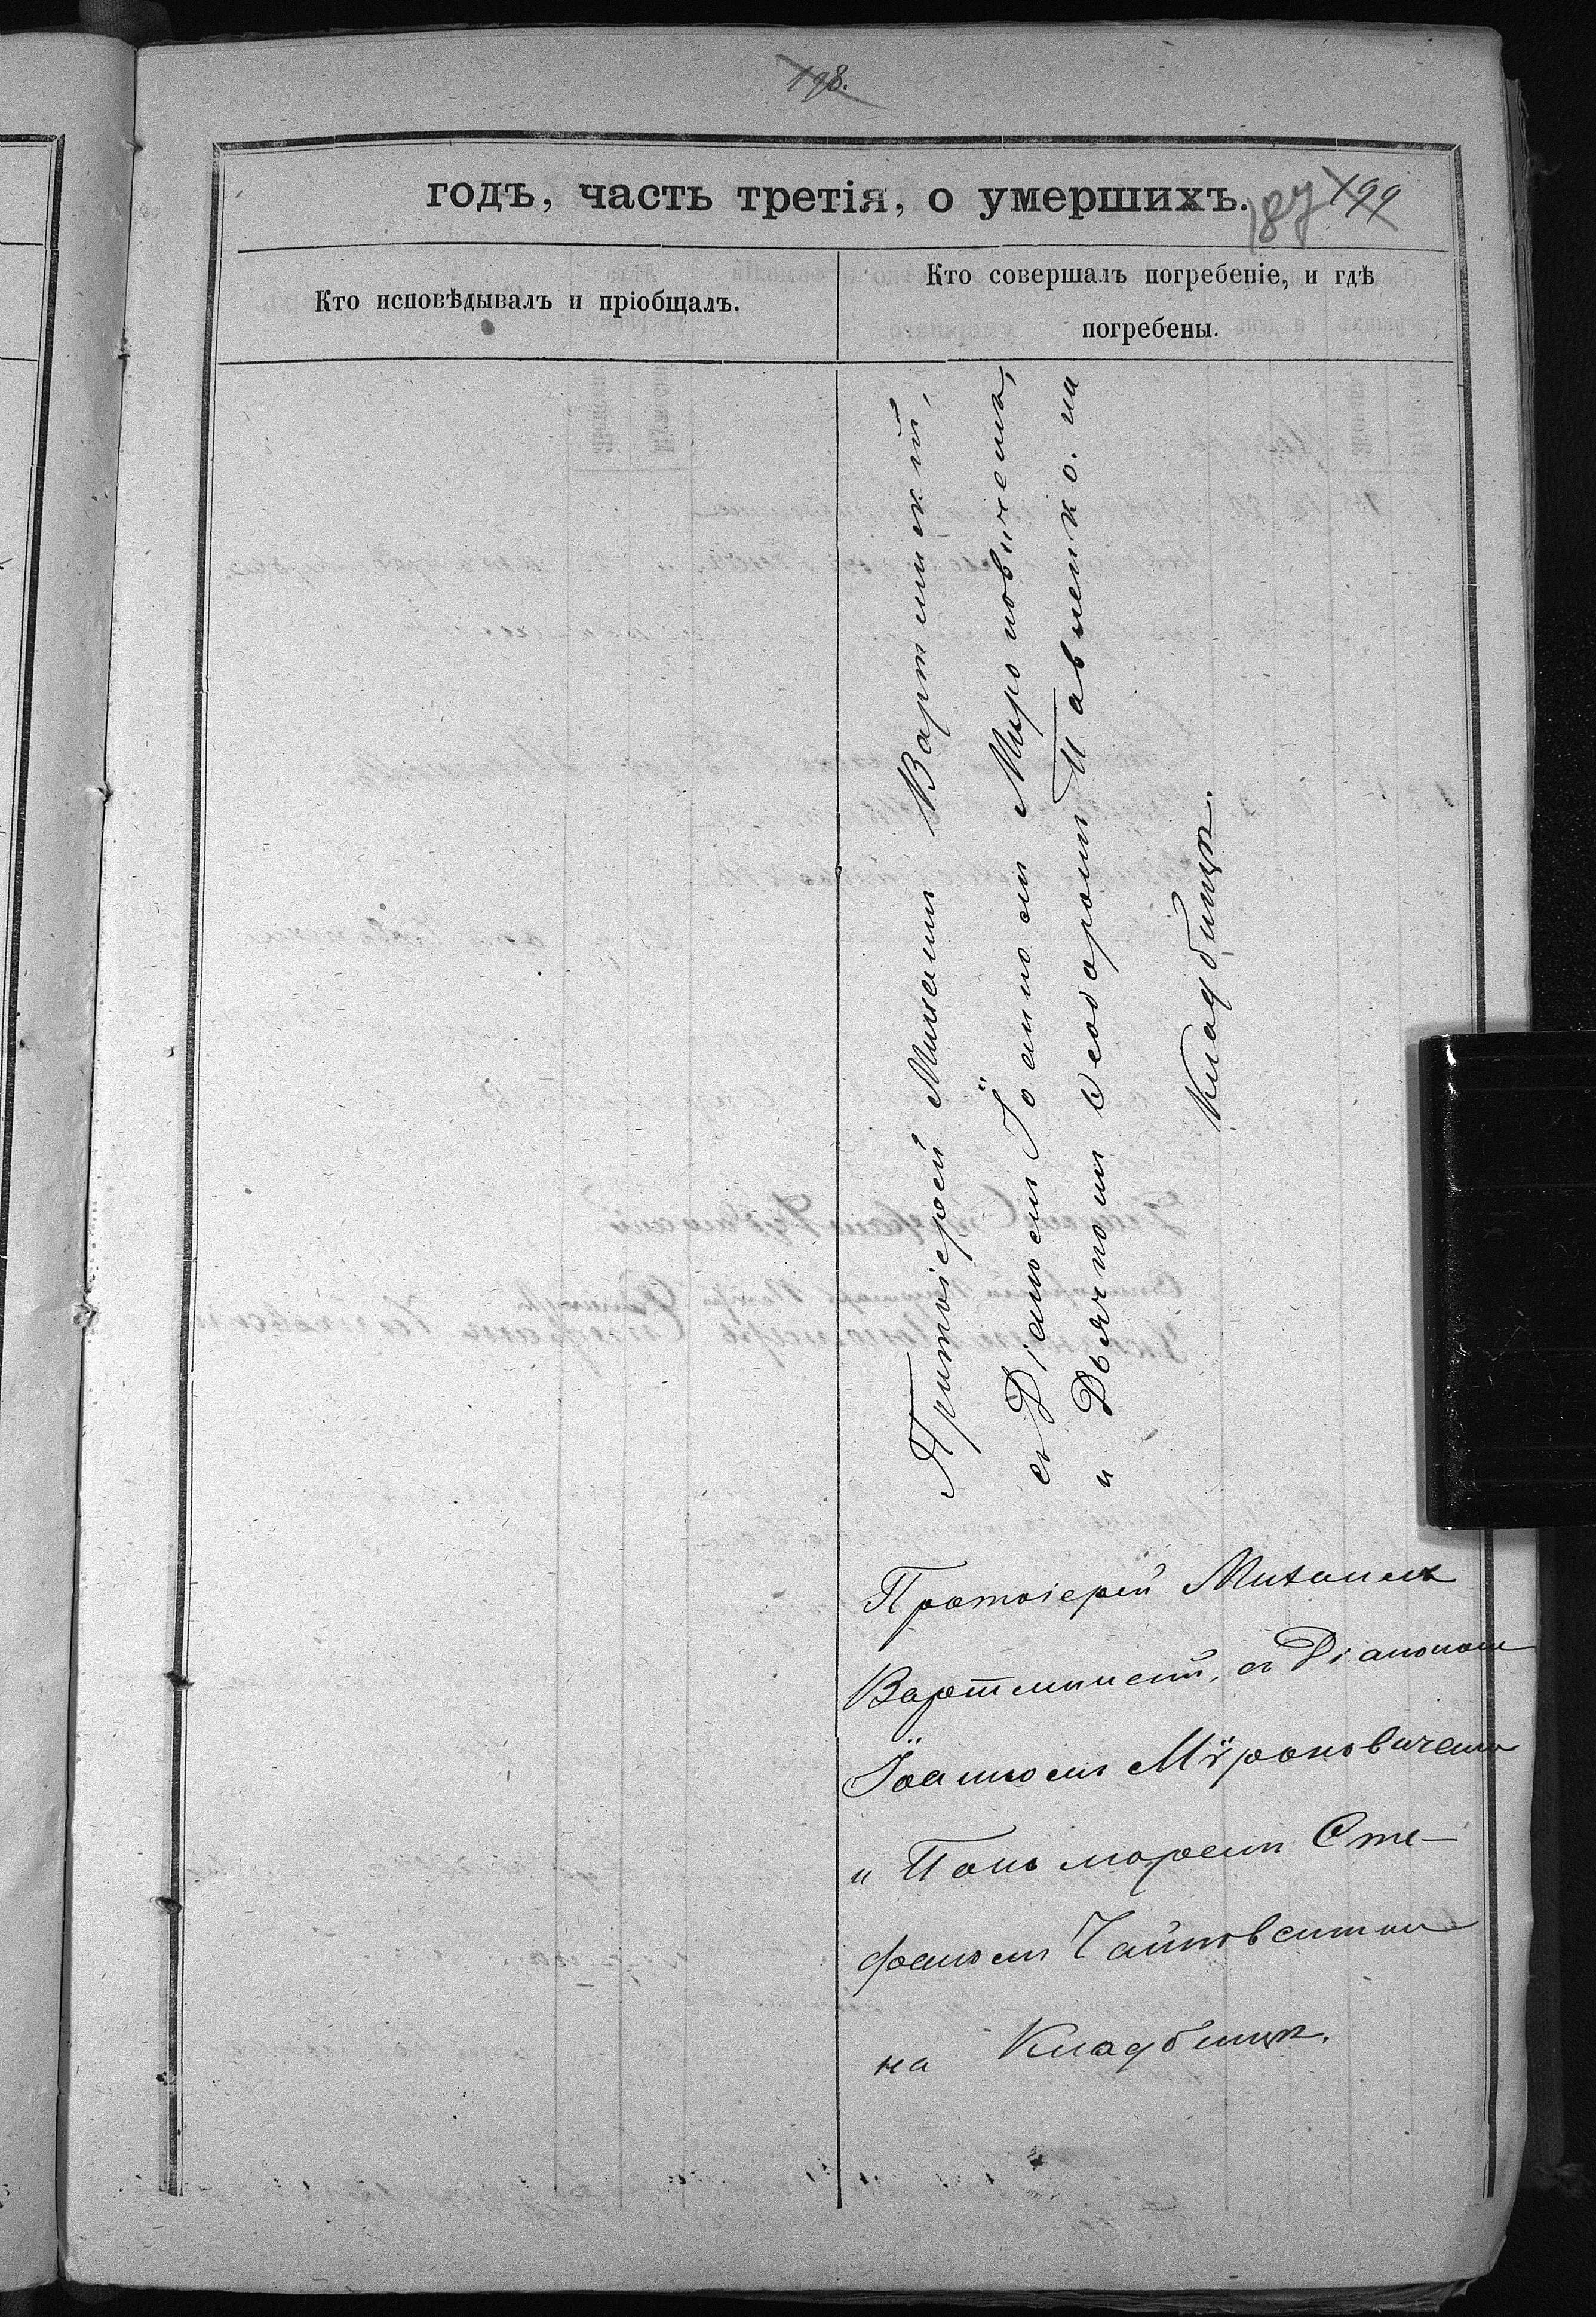 198.
годъ, часть третія, о умершихъ.
187 199
Кто исповѣдывалъ и пріобщалъ.
Кто совершалъ погребеніе, и гдѣ
погребены.
Протоіерей Михаилъ Вартминскій,
съ Діакономъ Іоанномъ Мироновичемъ,
и Дьячкомъ Ѳеодоромъ Павленко. на
Кладбищѣ.
Протоіерей Михаилъ
Вартминскій, съ Діакономъ
Іоанномъ Мѵроновичемъ
и Пономаремъ Сте-
фаномъ Чайковскимъ
на Кладбищѣ.